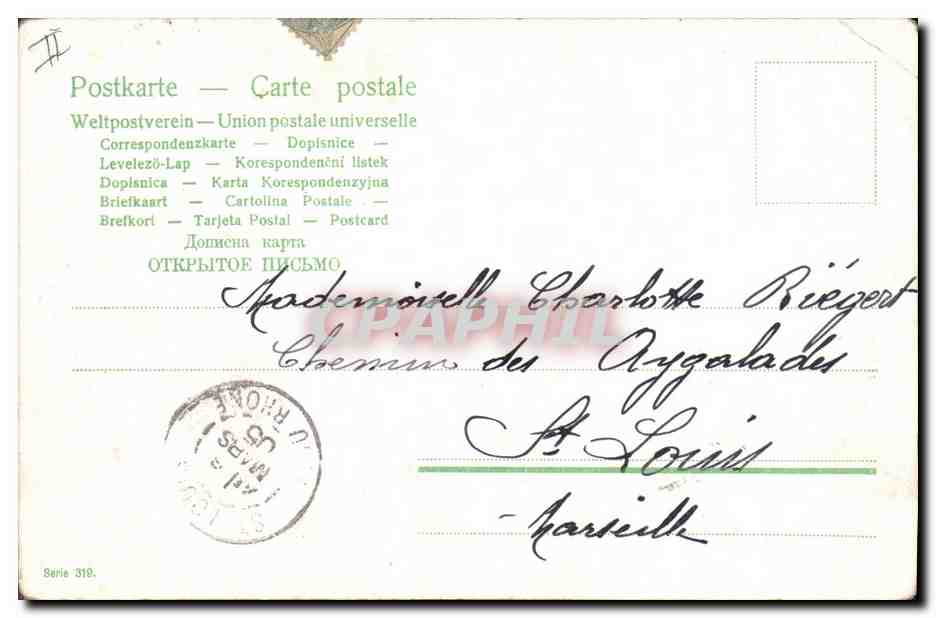 II
Postkarte — Carte postale
Weltpostverein — Union postale universelle
Correspondenzkarte — Dopisnice —
Levelező-Lap — Korespondenční lístek
Dopisnica — Karta Korespondenzyjna
Briefkaart — Cartolina Postale —
Brefkort — Tarjeta Postal — Postcard
Дописна карта
ОТКРЫТОЕ ПИСЬМО
Mademoiselle Charlotte Riégert
CPAPHIL
Chemin des Aygalades
St. Louis
Marseille
U RHONE
MARS
05
ST
Serie 319.